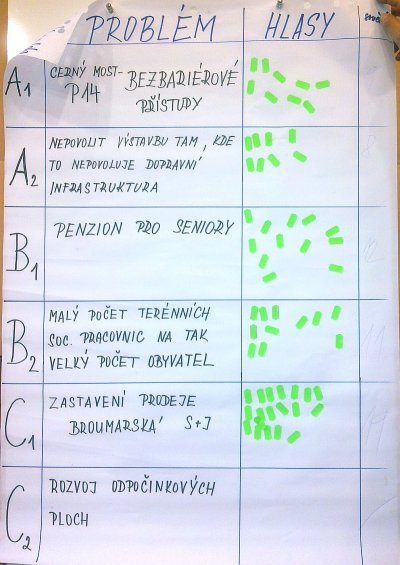 PROBLÉM HLASY
A1 ČERNÝ MOST- BEZBARIÉROVÉ
P14 PŘÍSTUPY
A2 NEPOVOLIT VÝSTAVBU TAM, KDE
TO NEPOVOLUJE DOPRAVNÍ
INFRASTRUKTURA
B1 PENZION PRO SENIORY
B2 MALÝ POČET TERÉNNÍCH
SOC. PRACOVNIC NA TAK
VELKÝ POČET OBYVATEL
C1 ZASTAVENÍ PRODEJE
BROUMARSKÁ S+J
C2 ROZVOJ ODPOČINKOVÝCH
PLOCH